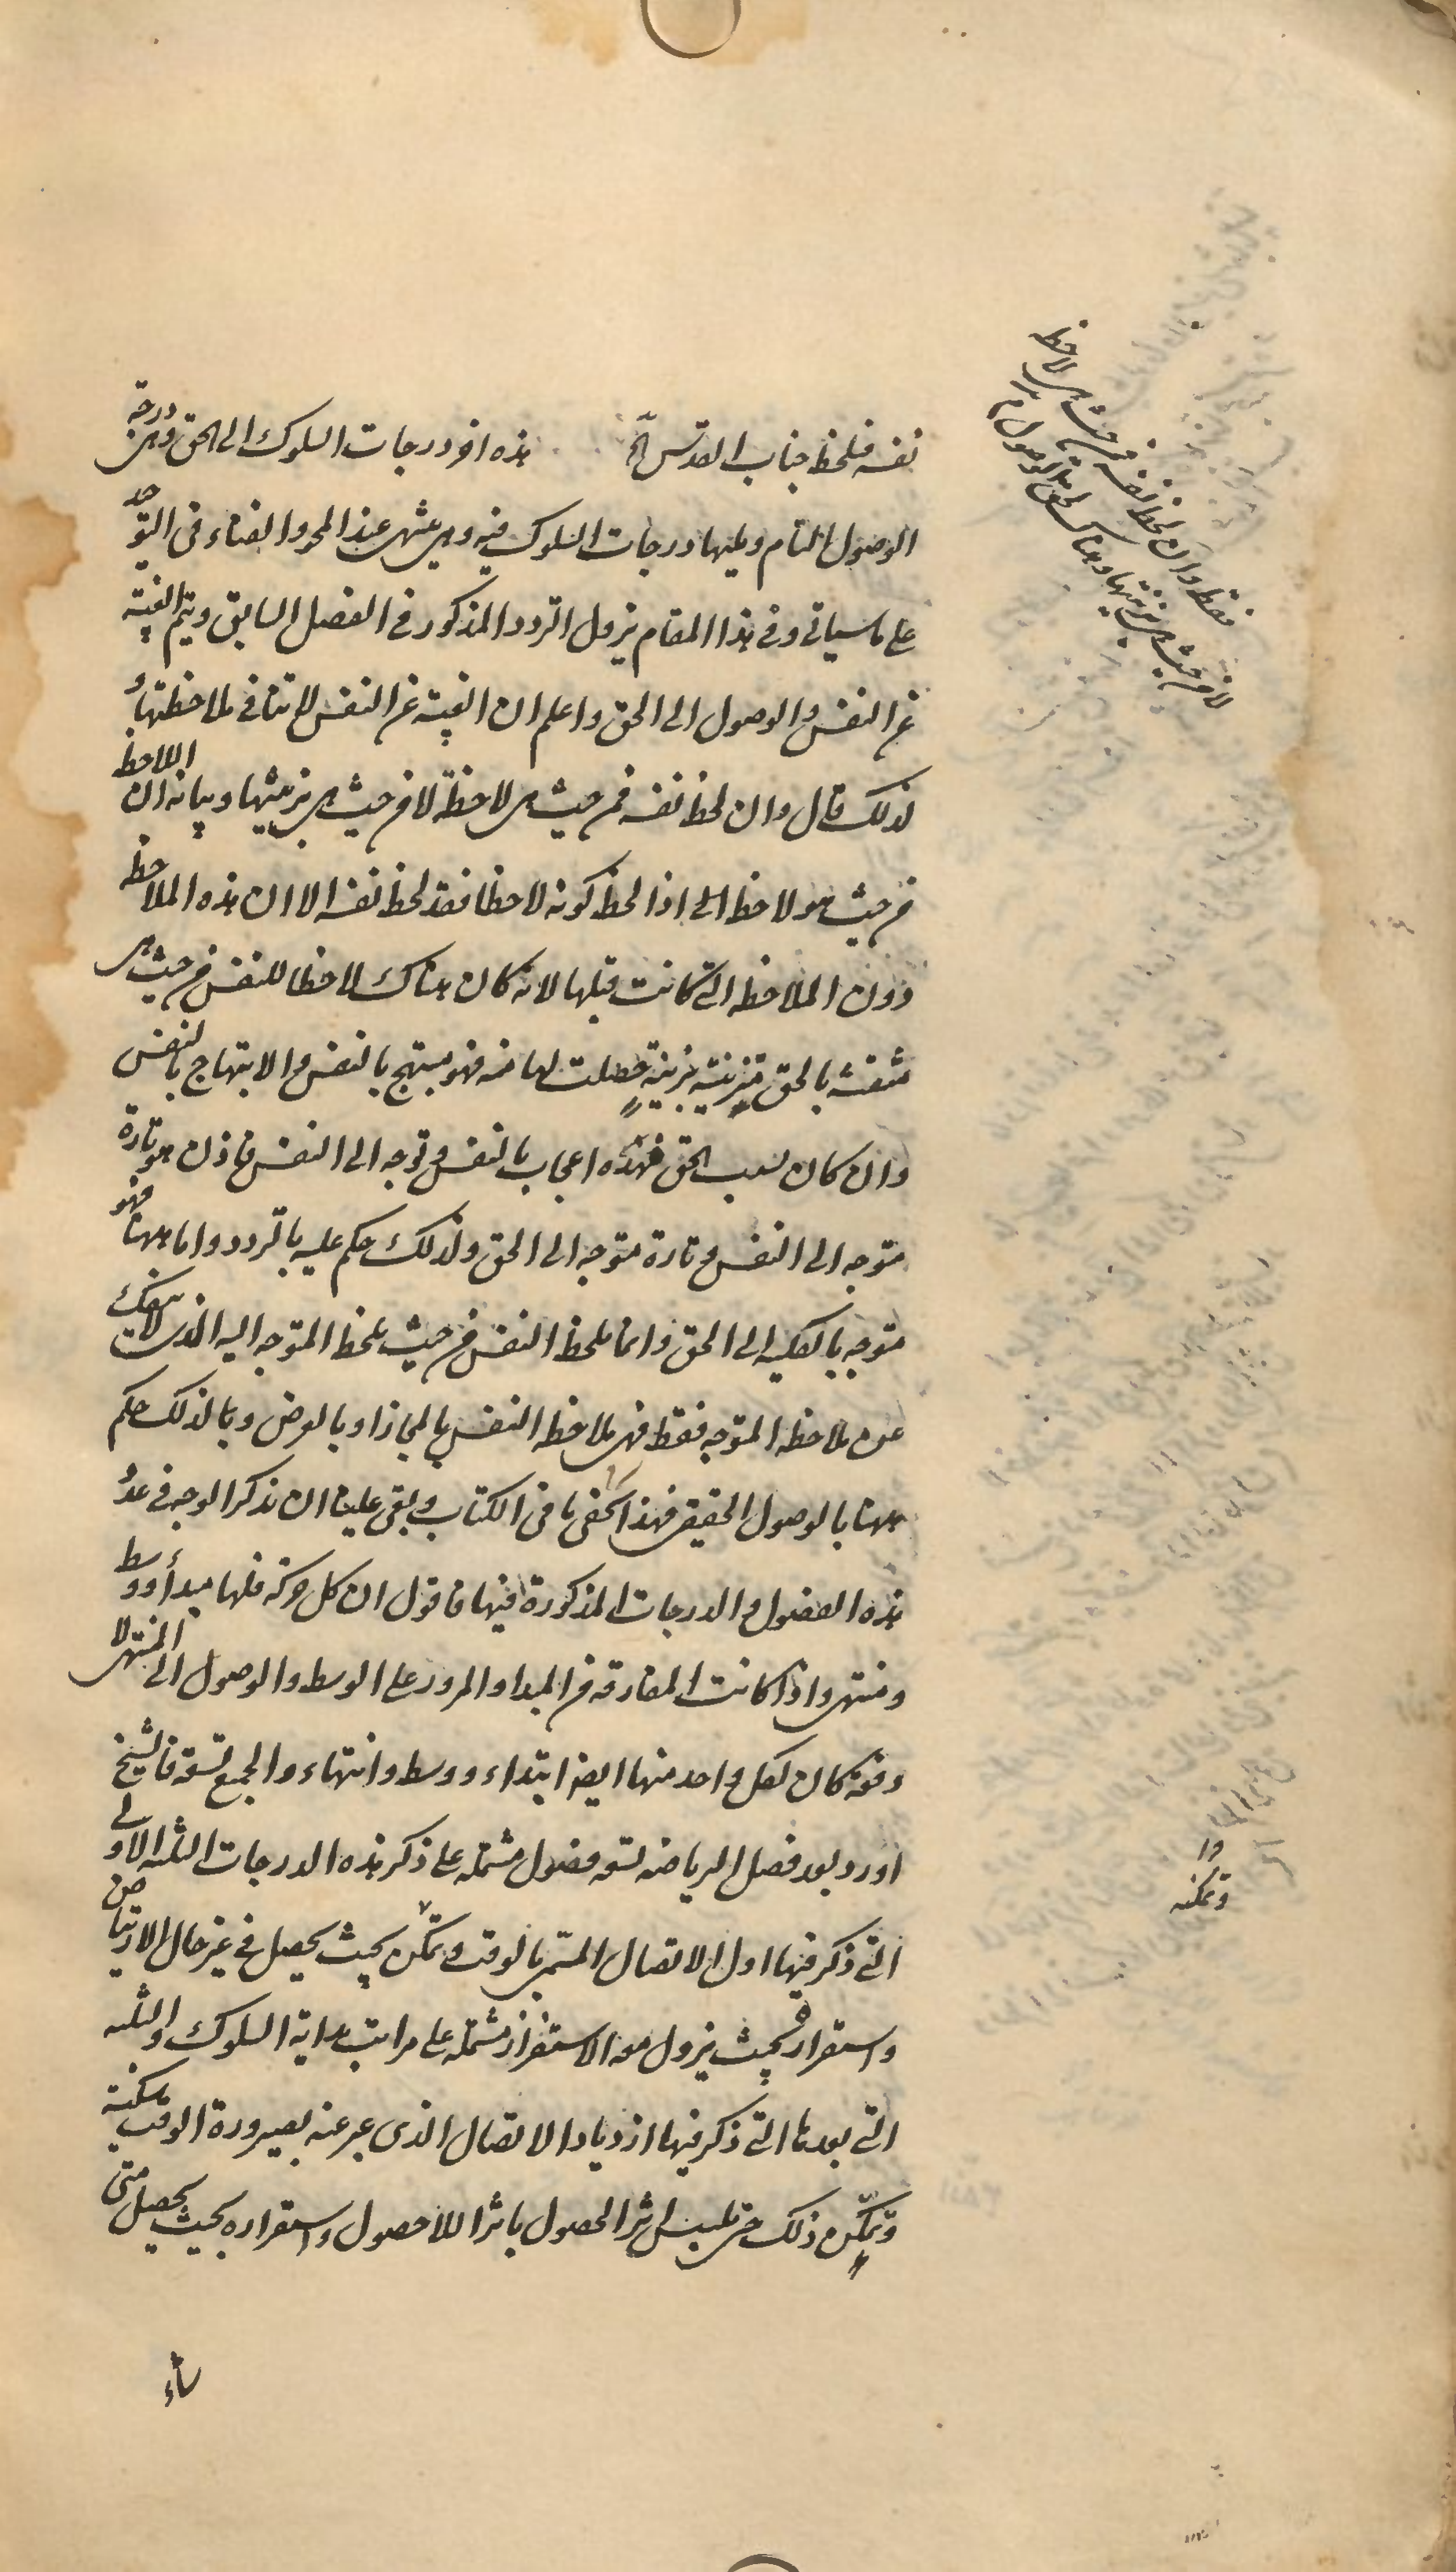 نفسه فيلحظ جناب القدس الخ هذه آخر درجات السلوك الى الحق وهى درجة
الوصول التام ويليها درجات السلوك فيه وهى تنتهى عند المحو والفناء فى التوحيد
على ما سياتى وفى هذا المقام يزول التردد المذكور فى الفصل السابق ويتم الغيبة
عن النفس والوصول الى الحق واعلم ان الغيبة عن النفس لا تنافى ملاحظتها و
لذلك قال وان لحظ نفسه فمن حيث هى لاحظة لا من حيث هى بزينتها وبيانه ان اللاحظ
من حيث هو لاحظ الى اذا لحظ كونه لاحظا فقد لحظ نفسه الا ان هذه الملاحظه
دون الملاحظه التى كانت قبلها لانه كان هناك لاحظا للنفس من حيث هى
متنقشه بالحق متزينة بزينة حصلت لها منه فهو مبتهج بالنفس والابتهاج بالنفس
وان كان بسبب الحق فهذه اعجاب بالنفس وتوجه الى النفس فاذن هو تارة
متوجه الى النفس وتارة متوجه الى الحق ولذلك حكم عليه بالتردد واما ههنا فهو
متوجه بالكليه الى الحق وانما يلحظ النفس من حيث يلحظ المتوجه اليه الذى لا ينفك
عن ملاحظه المتوجه فقط فهى ملاحظه النفس بالمجاز او بالعرض ولذلك حكم
ههنا بالوصول الحقيقى فهذا شرح ما فى الكتاب وبقى علينا ان نذكر الوجه فى عدد
هذه الفصول والدرجات المذكورة فيها فاقول ان كل حركة فلها مبدأ ووسط
ومنتهى واذا كانت المفارقه من المبدا والمرور على الوسط والوصول الى المنتهى لا
دفعة كان لكل واحد منها ايضا ابتداء ووسط وانتهاء والجميع تسعة فالشيخ
اورد بعد فصل الرياضه تسعة فصول مشتملة على ذكر هذه الدرجات الثلثه الاولى
التى ذكر فيها اول الاتصال المسمى بالوقت وتمكن بحيث يحصل فى غير حال الارتياض
واستقراره بحيث يزول معه الاستفزاز مشتملة على مراتب بداية السلوك والثلثه
التى بعدها التى ذكر فيها ازدياد الاتصال الذى عبر عنه بصيرورة الوقت سكينة
وتمكن ذلك حتى يلتبس اثر الحصول باثر اللاحصول واستقراره بحيث يحصل متى
شاء
فقط وان لحظ نفسه فمن حيث هى لاحظه
لا من حيث هى بزينتها وهناك يحق الوصول م
وتمكنه